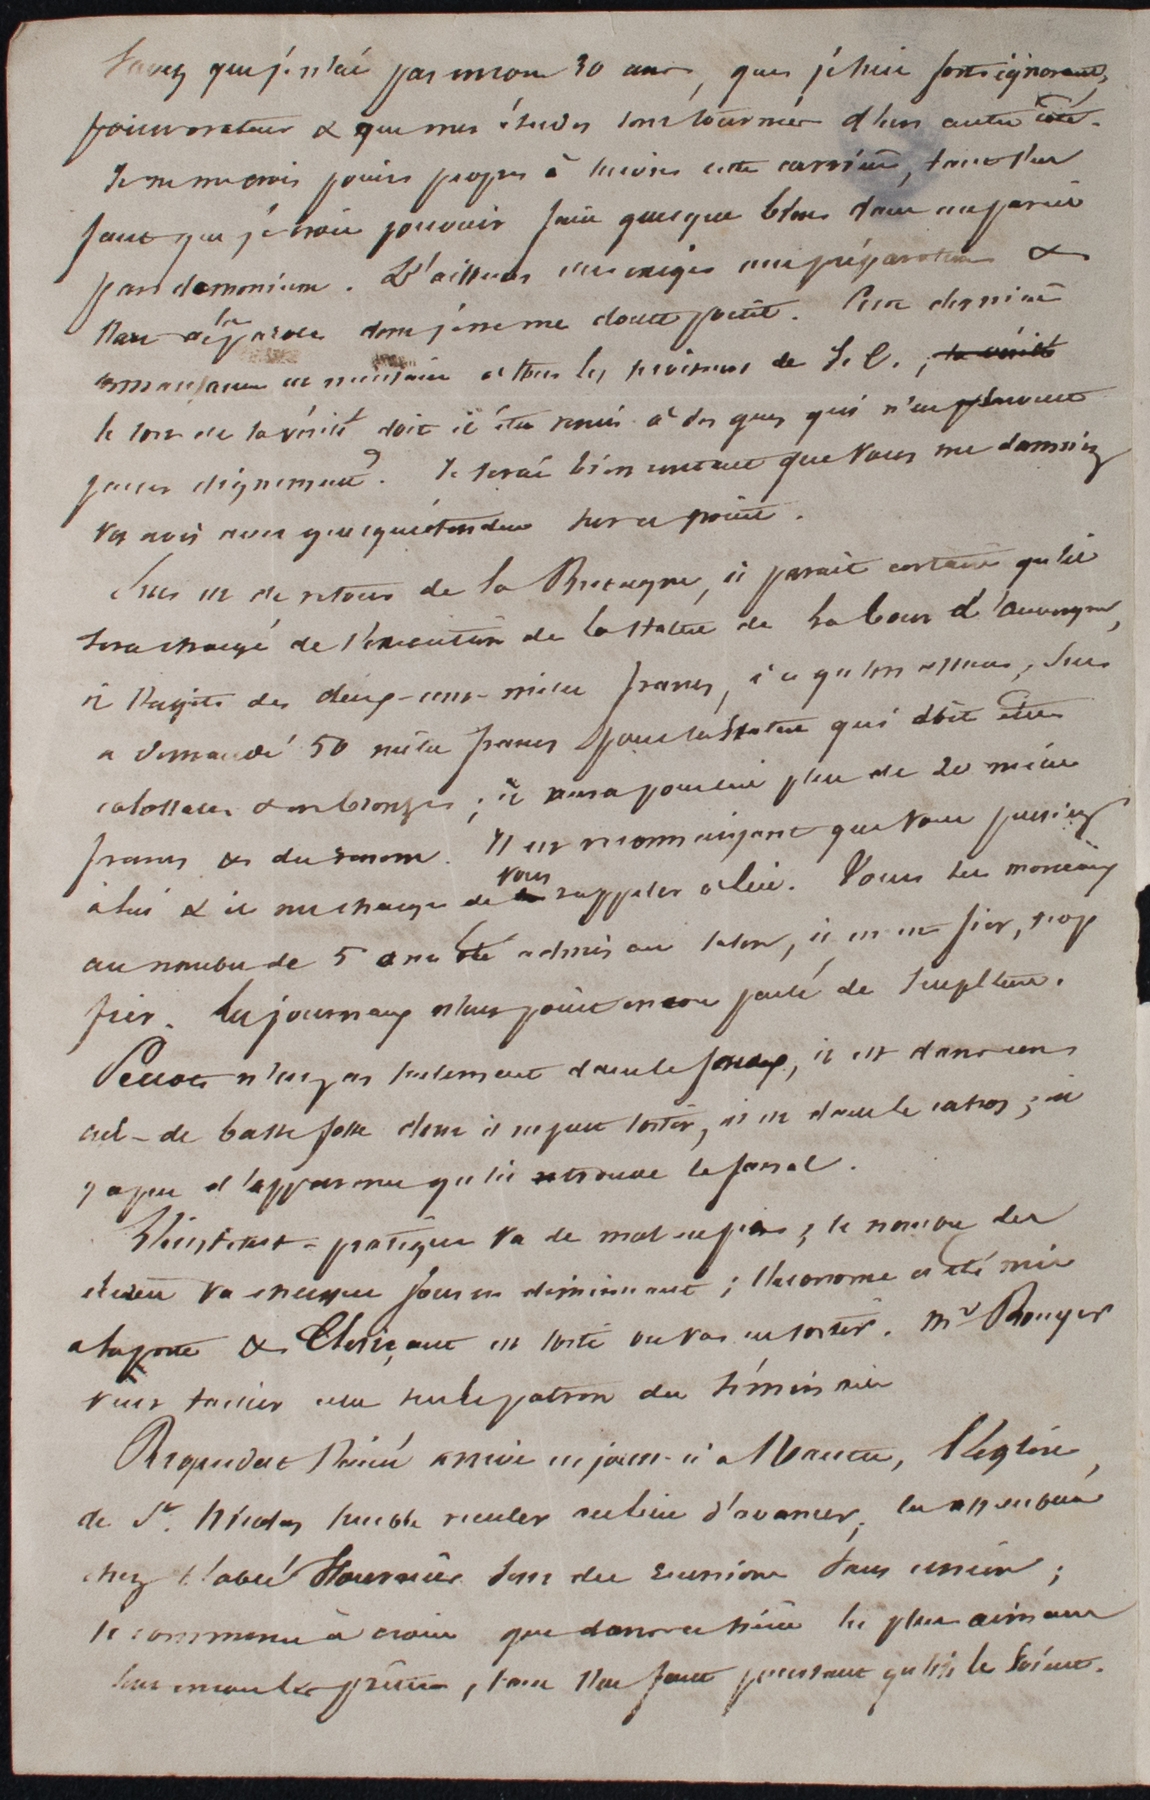 savez que je n'ai pas encore 30 ans, que je suis fort ignorant,
& que mes études sont tournées d'un autre côté.
Je ne me crois point propre à suivre cette carrière, tant s'en
faut que je croie pouvoir faire quelque bien dans un pareil
pandemonium. D'ailleurs cela exige une préparation &
dont je ne me doute point. Cette dernière
est nécessaire à tous les serviteurs de J. C.;
le soin de la vérité doit il être remis à des gens qui n'en peuvent
parler dignement? Je serai bien content que vous me donniez
vos avis avec quelqu'étendue sur ce point.
Suc est de retour de la Bretagne, il paraît certain qu'il
sera chargé de l'exécution de la statue de La Tour d'Auvergne,
il s'agit de deux-cent-mille francs, à ce qu'on assure; Suc
a demandé 50 mille francs pour la statue qui doit être
colossale & en bronze; il aura pour lui plus de 20 mille
francs & du renom. Il est reconnaissant que vous pensiez
à lui & il me charge de vous rappeler à lui. Tous ses morceaux
au nombre de 5 ont été admis au salon, il en est fier, trop
fier. Les journaux n'ont point encore parlé de sculpture.
n'est pas seulement dans le fossé, il est dans un
cul-de basse fosse dont il ne peut sortir, il est dans le cahos; il
y a peu d'apparence qu'il retrouve le fanal.
L'institut-pratique va de mal en pis; le nombre des
élèves va chaque jour en diminuant; l'économe a été mis
à la porte & est sorti ou va en sortir. Mr Rouger
veut laisser cela sur le patron du séminaire
René arrive ces jours-ci à Nantes, l'église
de St. Nicolas semble reculer au lieu d'avancer; les assemblées
chez l'abbé Fournier sont des réunions sans union;
Je commence à croire que dans ce siècle les plus aimans
sont encore les prêtres, tant s'en faut pourtant qu'ils le soient.